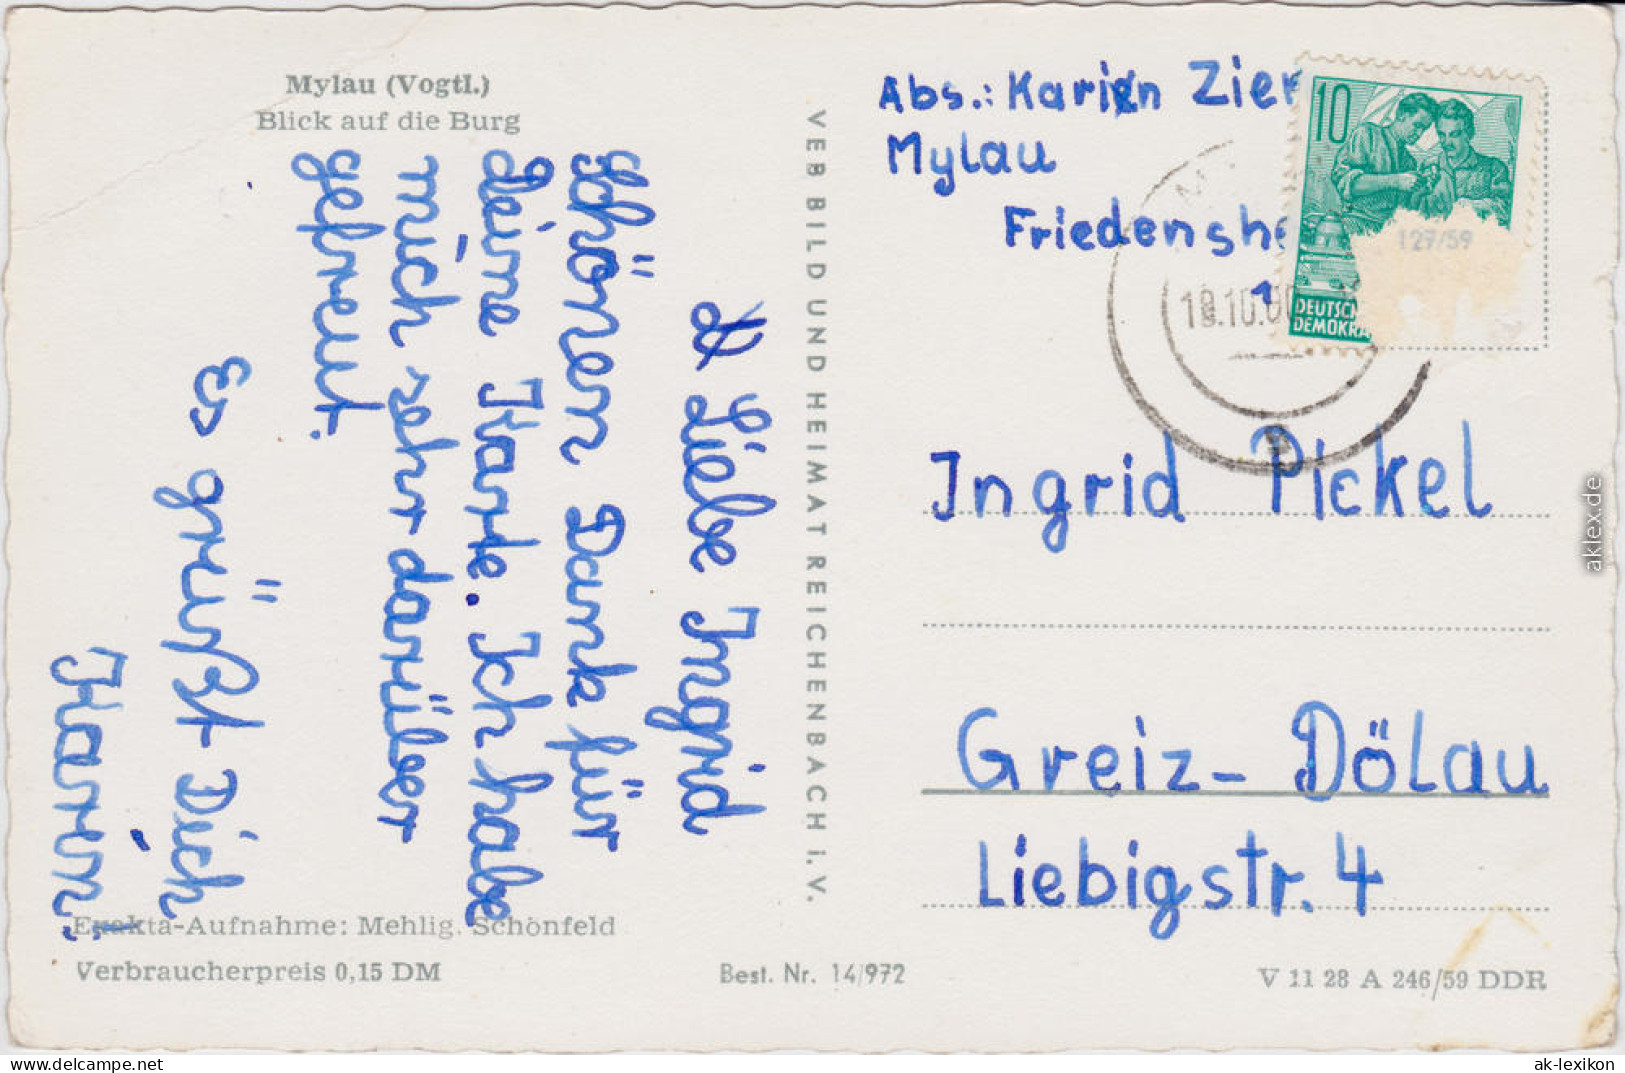 Mylau (Vogtl.)
Blick auf die Burg
Liebe Ingrid
Schönen Dank für
deine Karte. Ich habe
mich sehr darüber
gefreut.
Es grüßt Dich
Karin
Exakta-Aufnahme: Mehlig. Schönfeld
Verbraucherpreis 0,15 DM
Best. Nr. 14/972
VEB BILD UND HEIMAT REICHENBACH i. V.
Abs.: Karin Zier
Mylau
Friedenshe
1
10
127/59
DEUTSCH
DEMOKRA
Ingrid Pickel
Greiz-Dölau
Liebigstr. 4
V 11 28 A 246/59 DDR
aklex.de
www.delcampe.net
ak-lexikon